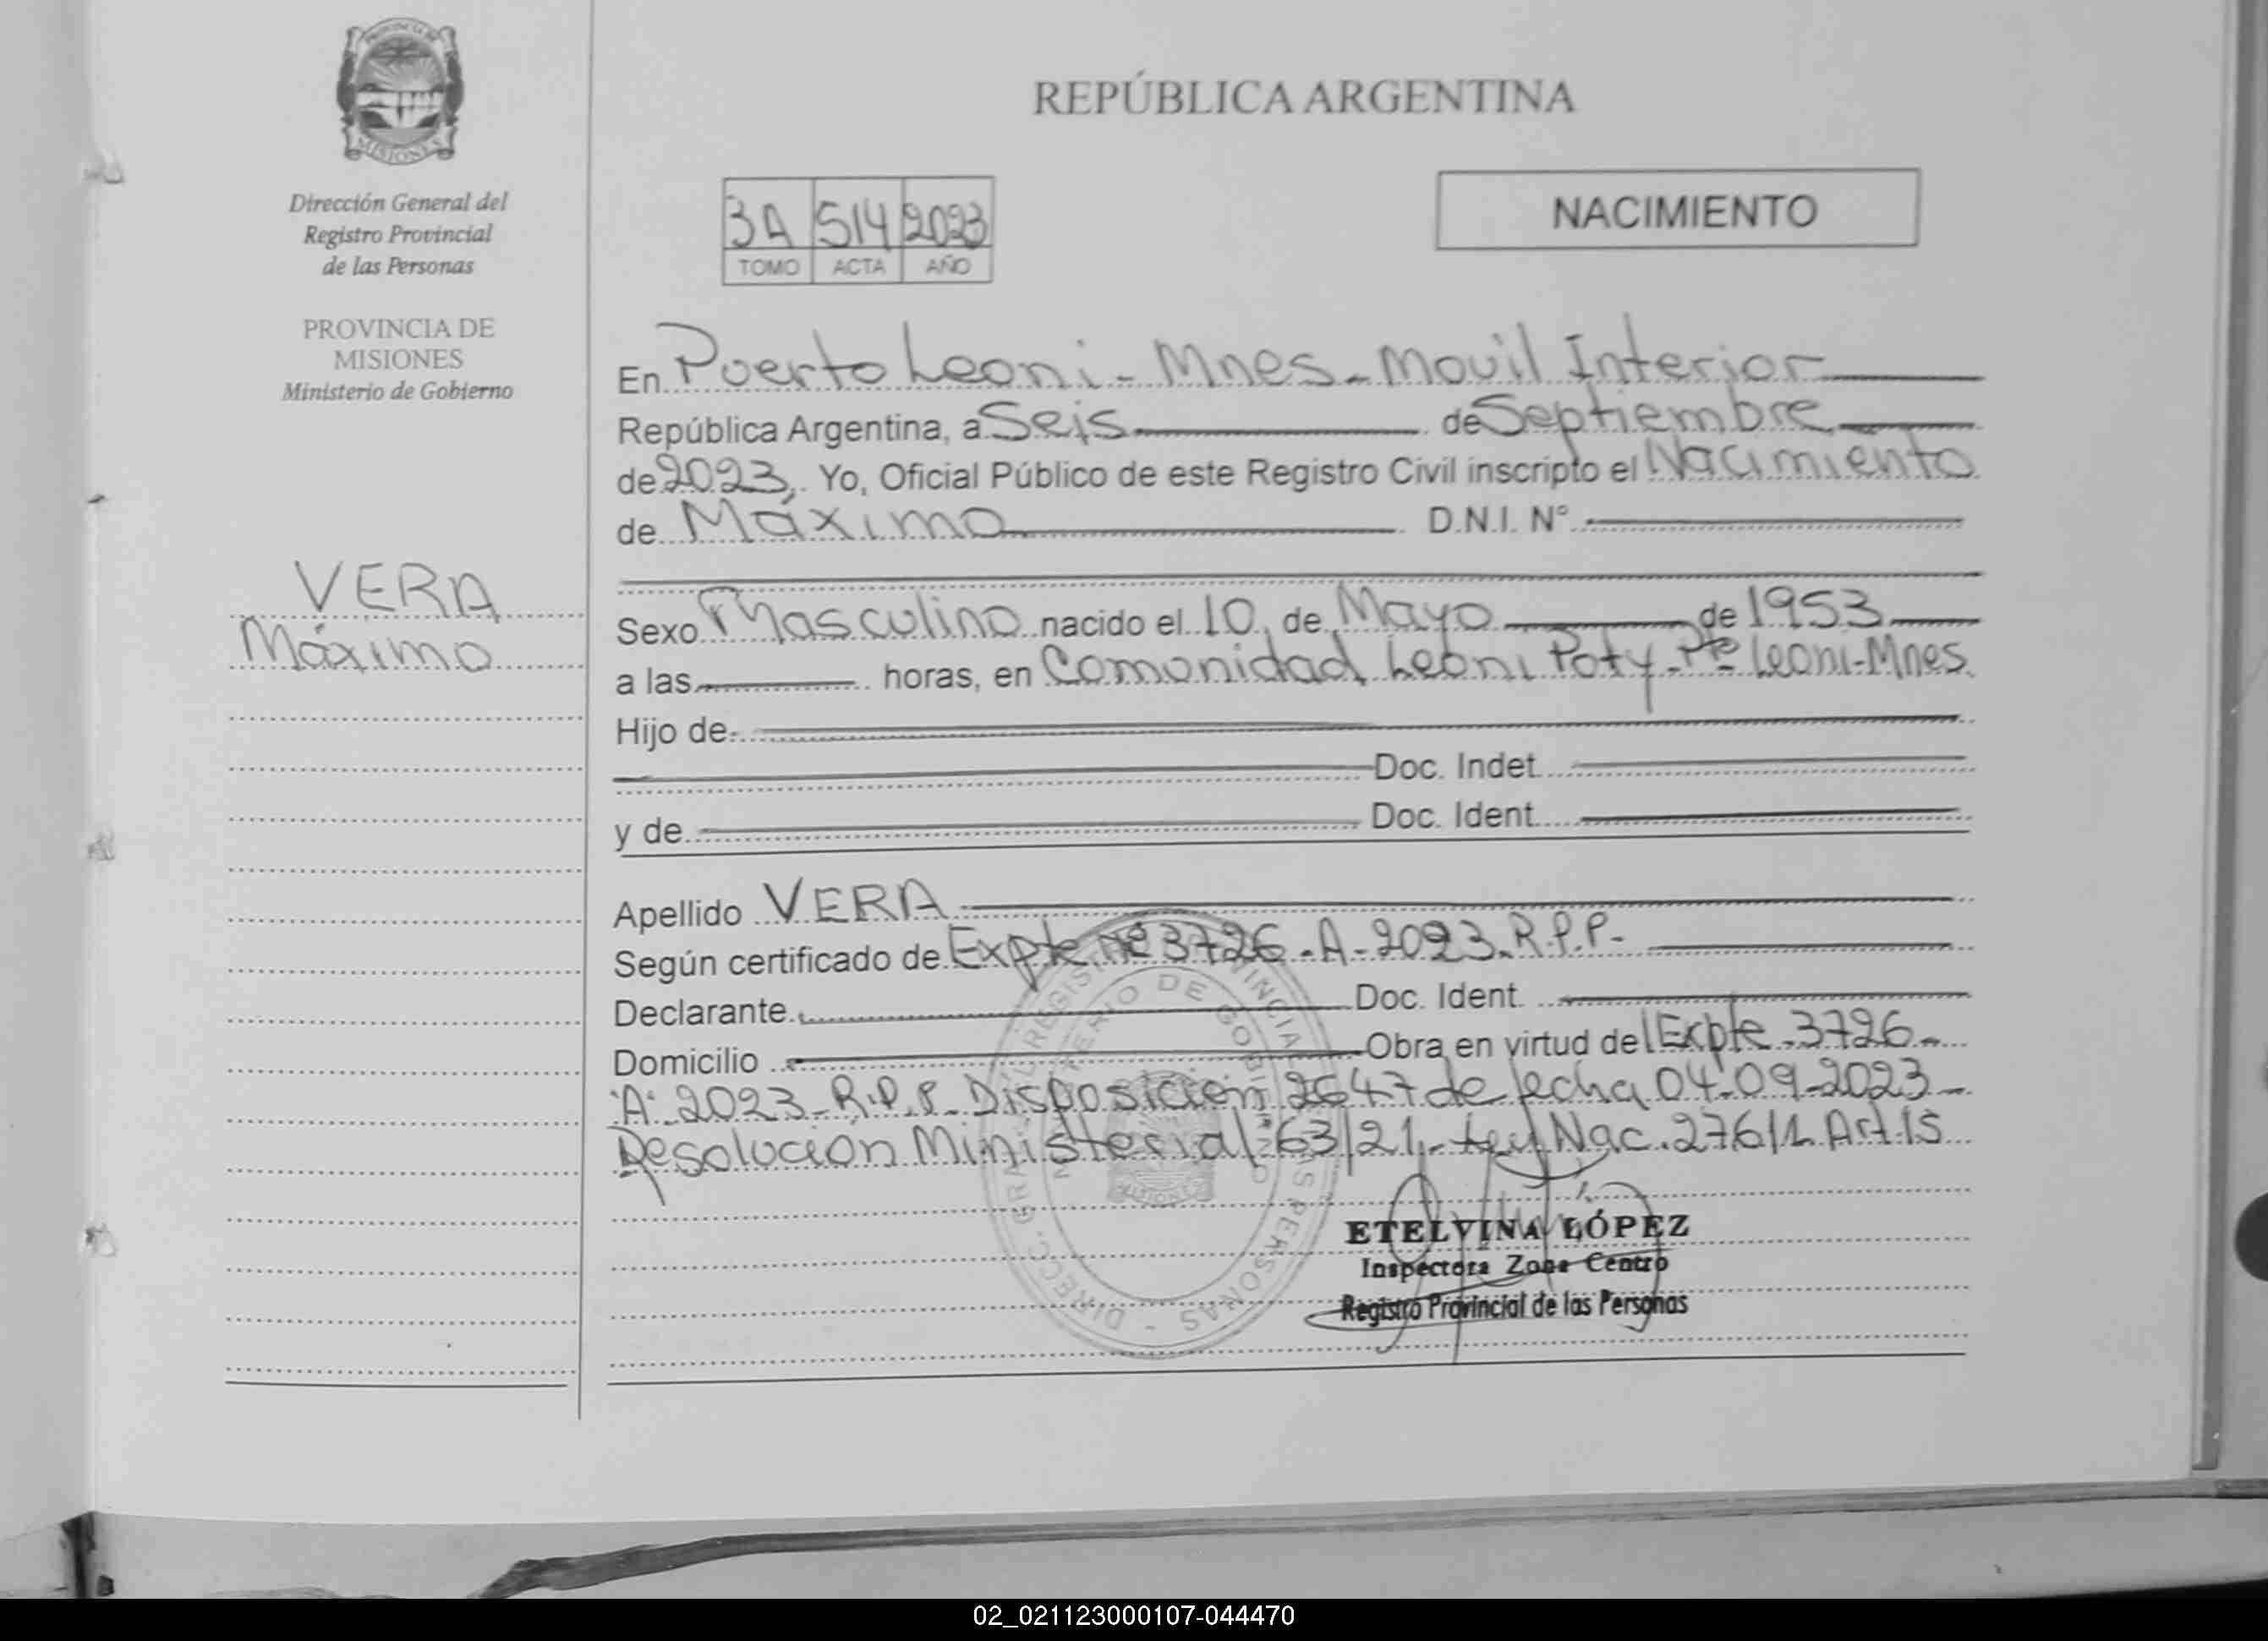 PROVINCIA DE
MISIONES
Dirección General del
Registro Provincial
de las Personas
PROVINCIA DE
MISIONES
Ministerio de Gobierno
VERA
Máximo
REPÚBLICA ARGENTINA
3A 514 2023
TOMO ACTA AÑO
NACIMIENTO
En Puerto Leoni - Mnes - Movil Interior
República Argentina, a Seis de Septiembre
de 2023, Yo, Oficial Público de este Registro Civil inscripto el Nacimiento
de Máximo D.N.I. N°
Sexo Masculino nacido el 10 de Mayo de 1953
a las horas, en Comunidad Leoni Poty - Pto Leoni - Mnes.
Hijo de
Doc. Indet.
y de Doc. Ident.
Apellido VERA
Según certificado de Expte nº 3726 - A - 2023. R.P.P.
Declarante Doc. Ident.
Domicilio Obra en virtud del Expte. 3726 -
"A" 2023 - R.P.P. Disposición 2647 de fecha 04-09-2023 -
Resolución Ministerial 63/21 - Ley Nac. 27611 Art. 15
MINISTERIO DE GOBIERNO
PERSONAS - DIRECC. GRAL.
MISIONES
ETELVINA LÓPEZ
Inspectora Zona Centro
Registro Provincial de las Personas
02_021123000107-044470